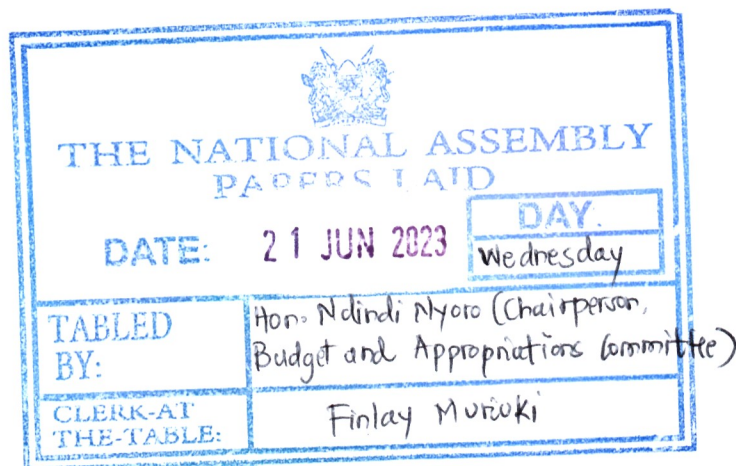 THE NATIONAL ASSEMBLY
PAPERS LAID
DATE: 21 JUN 2023
DAY.
Wednesday
TABLED BY:
Hon. Ndindi Nyoro (Chairperson,
Budget and Appropriations Committee)
CLERK-AT
THE-TABLE:
Finlay Muriuki